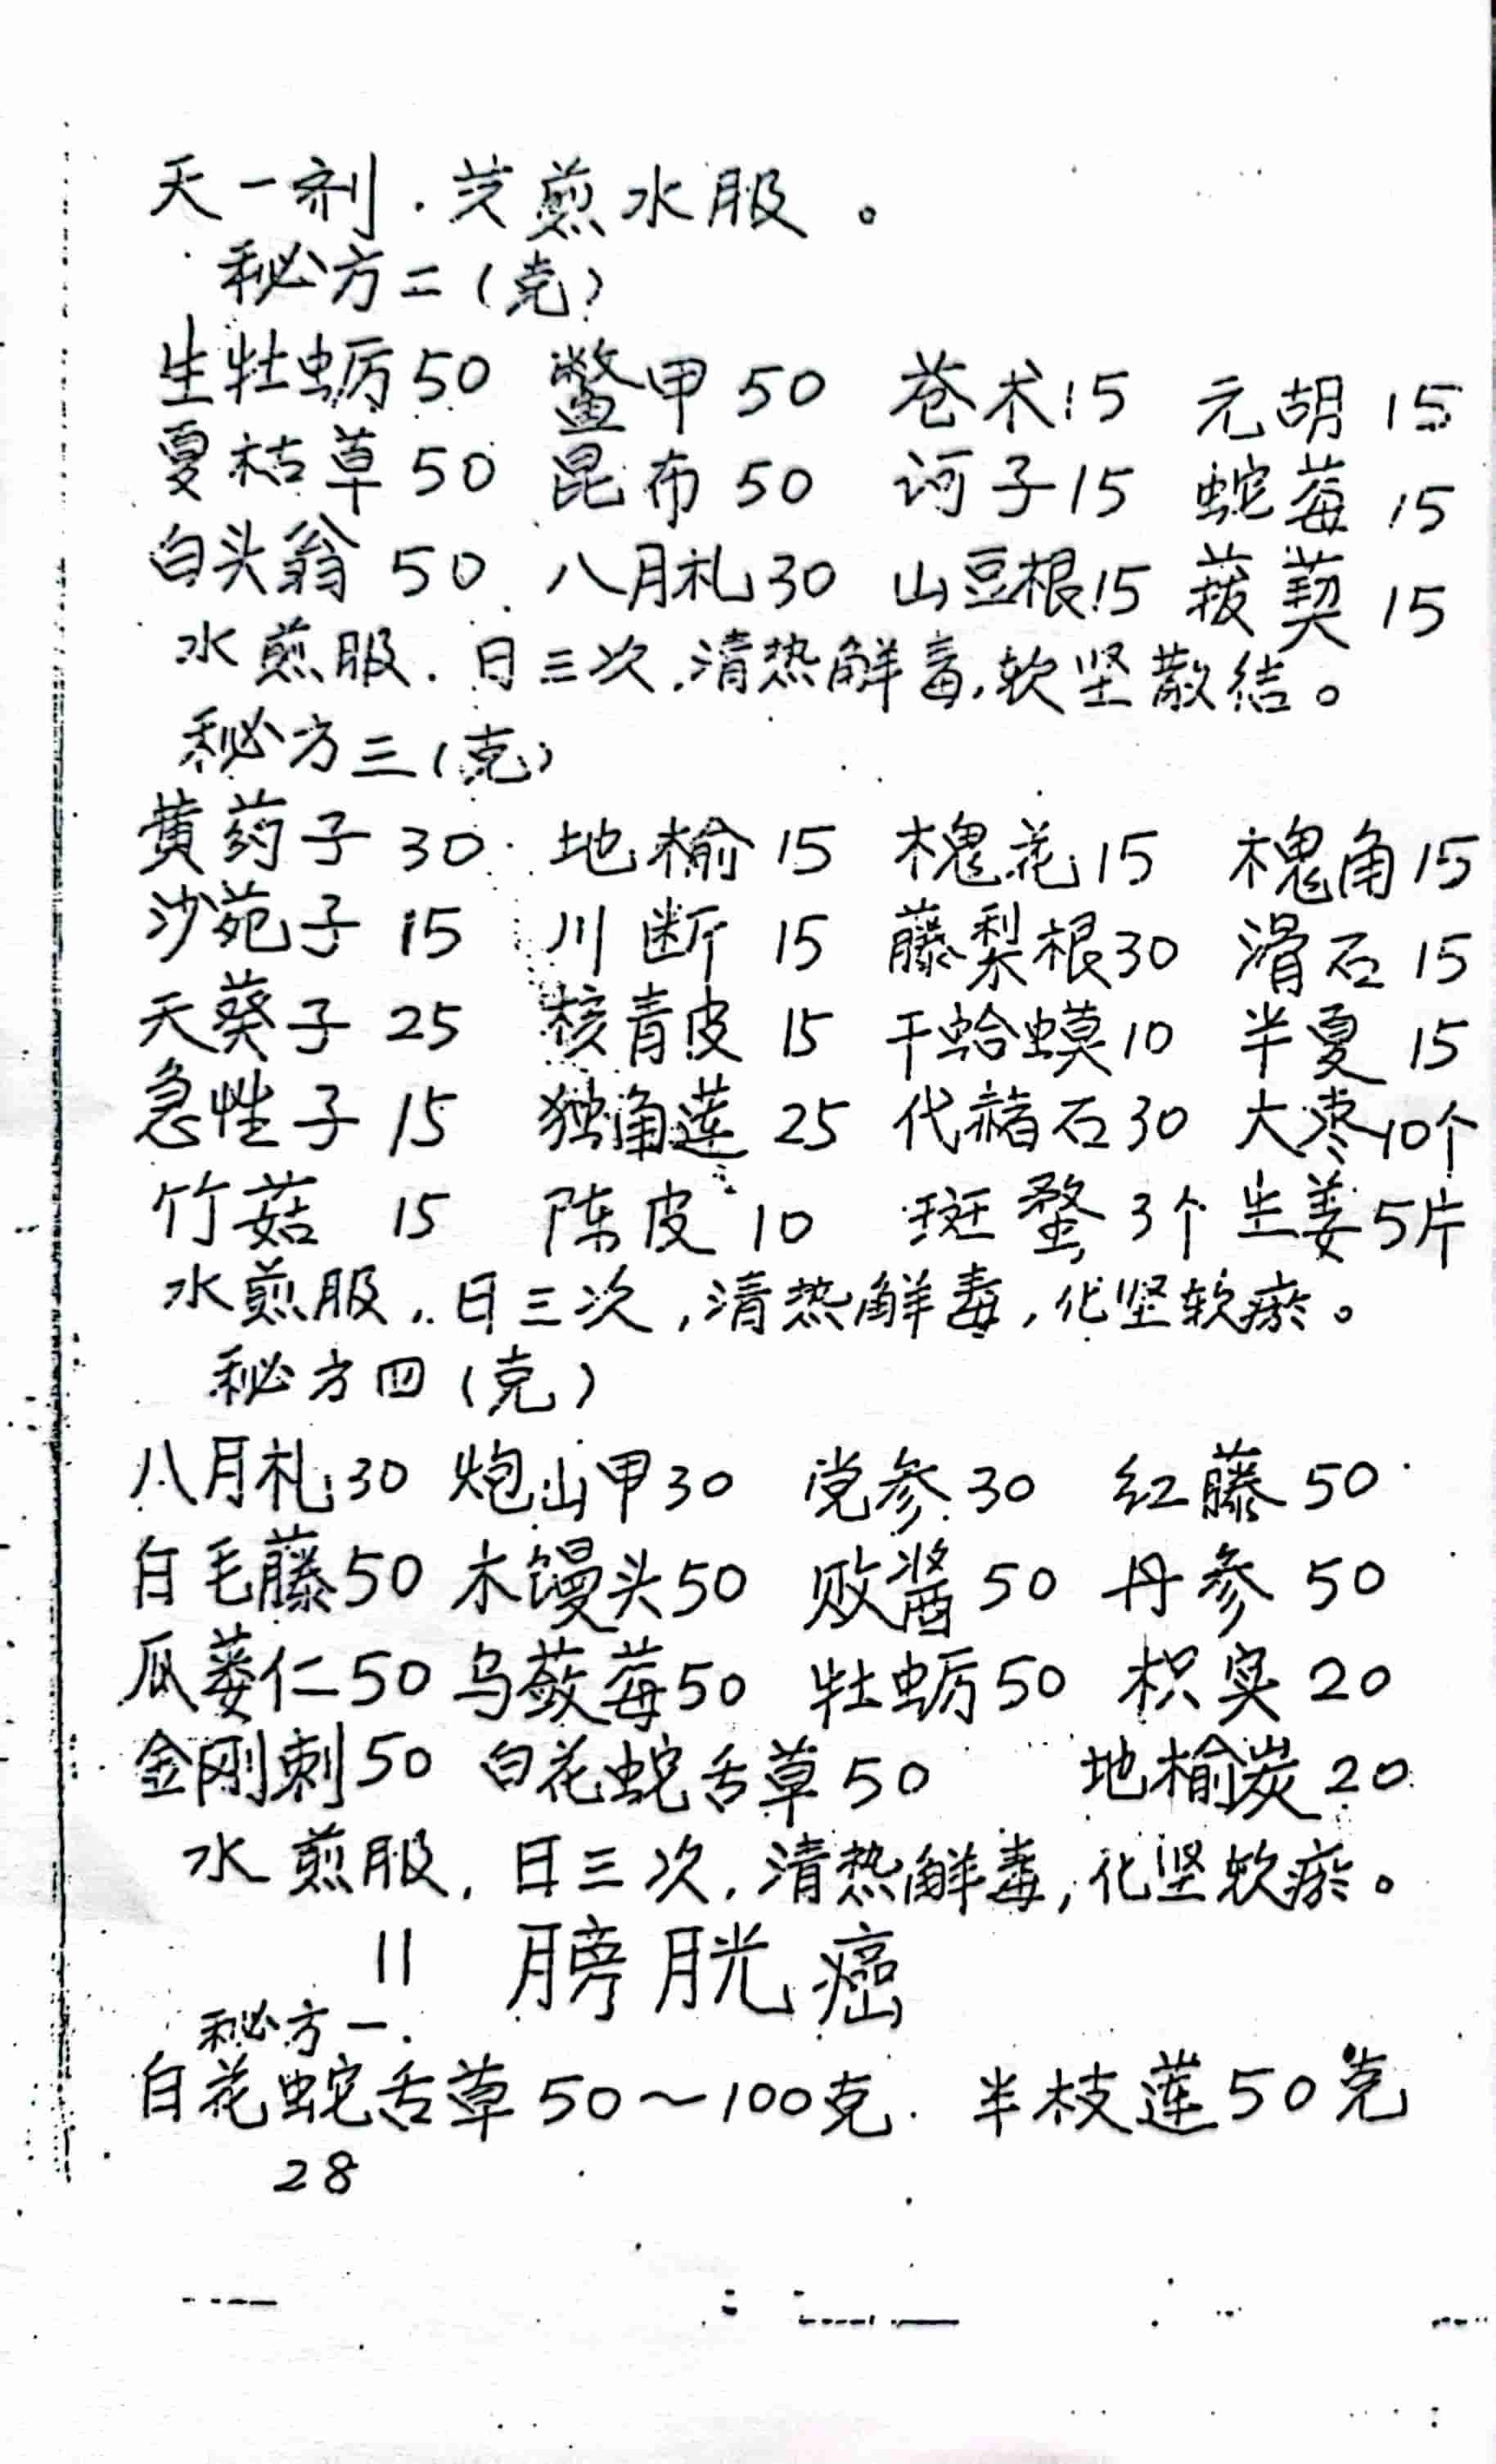 天一剂.共煎水服。
秘方二(克)
生牡蛎50 鳖甲50 苍术15 元胡15
夏枯草50 昆布50 诃子15 蛇莓15
白头翁50 八月札30 山豆根15 菝葜15
水煎服.日三次,清热解毒,软坚散结。
秘方三(克)
黄药子30 地榆15 槐花15 槐角15
沙苑子15 川断15 藤梨根30 滑石15
天葵子25 核青皮15 干蛤蟆10 半夏15
急性子15 独角莲25 代赭石30 大枣10个
竹菇15 陈皮10 斑蝥3个 生姜5片
水煎服,日三次,清热解毒,化坚软瘀。
秘方四(克)
八月札30 炮山甲30 党参30 红藤50
白毛藤50 木馒头50 败酱50 丹参50
瓜蒌仁50 乌蔹莓50 牡蛎50 枳实20
金刚刺50 白花蛇舌草50 地榆炭20
水煎服,日三次,清热解毒,化坚软瘀。
11 膀胱癌
秘方一.
白花蛇舌草50~100克. 半枝莲50克
28